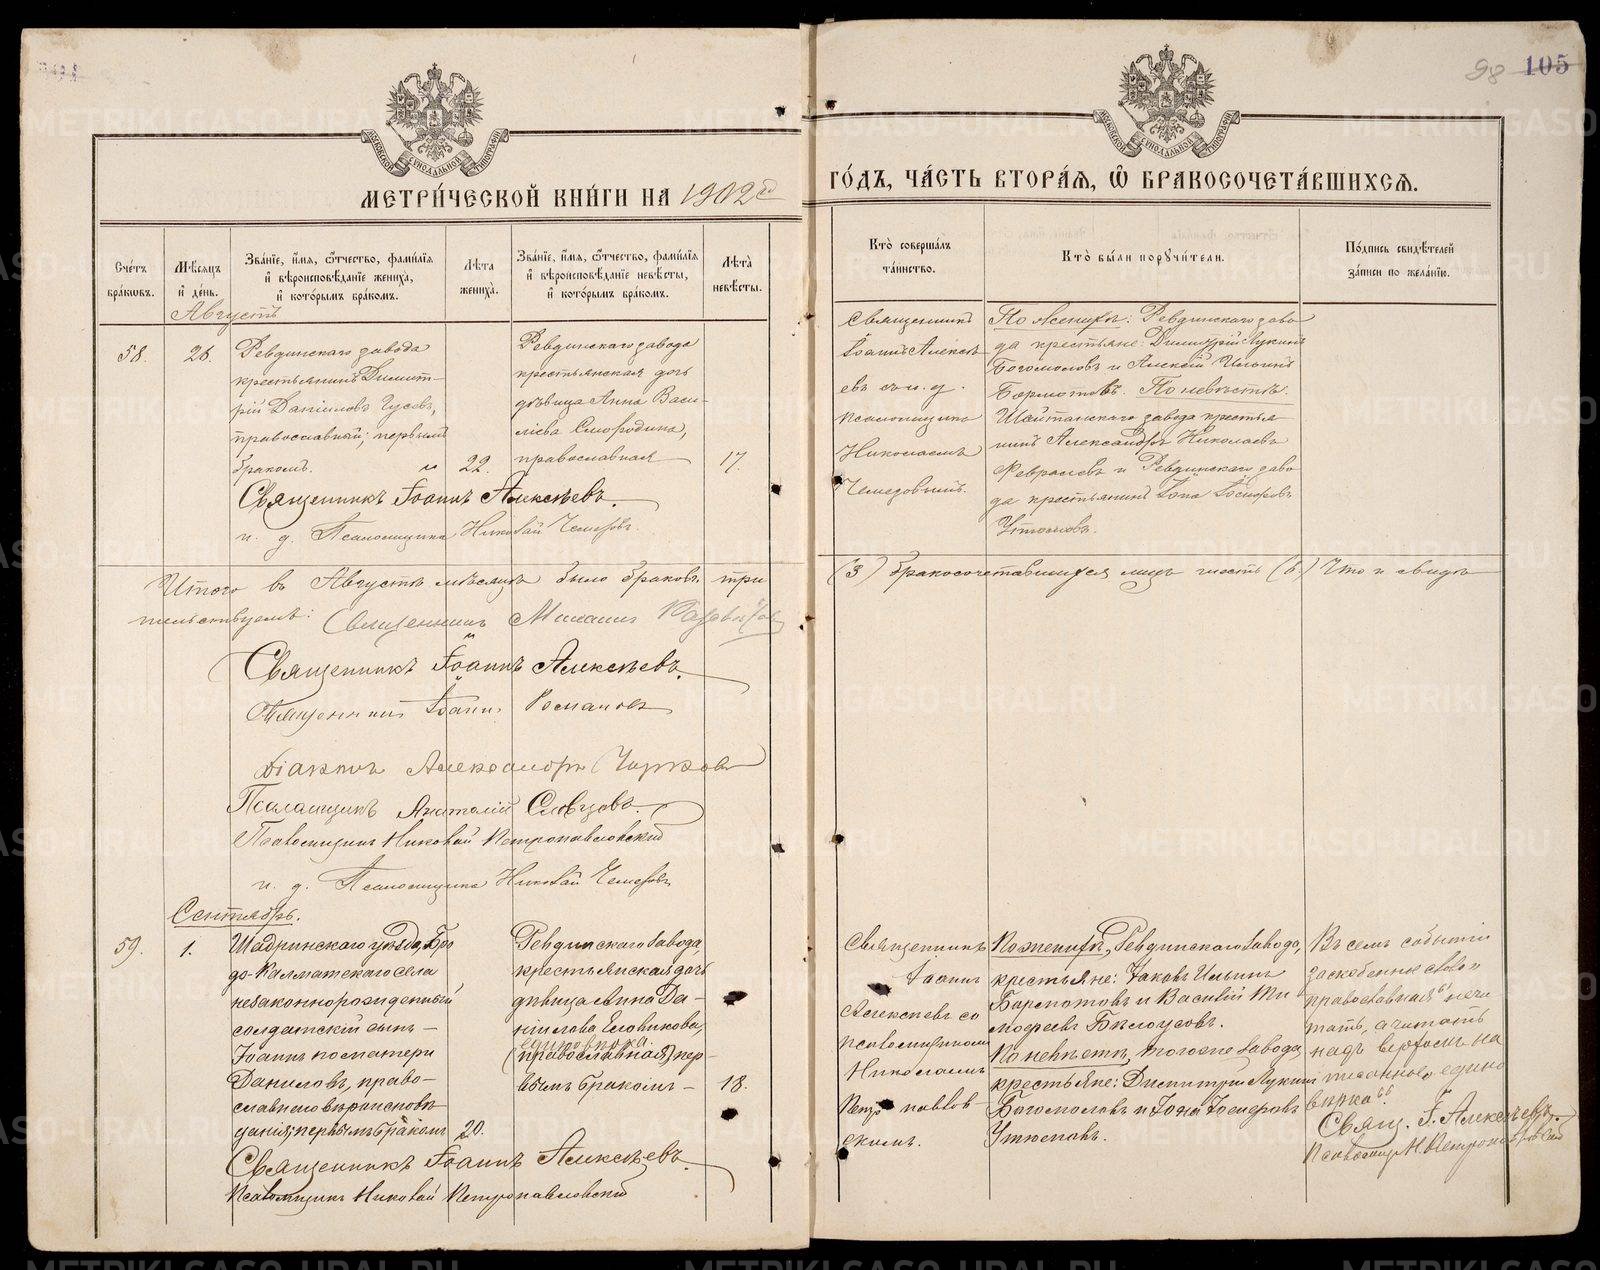 98 105
МЕТРИ́ЧЕСКОЙ КНИ́ГИ НА 1902й
ГО́ДЪ, ЧА́СТЬ ВТОРА́Я, Ѡ҆ БРАКОСОЧЕТА́ВШИХСЯ.
Сче́тъ
бра́ковъ.
Мѣ́сяцъ
и҆ де́нь.
Зва́нїе, и҆́мя, ѻ҆́тчество, фами́лїя
и҆ вѣроисповѣ́данїе жениха̀,
и҆ кото́рымъ бра́комъ.
Лѣ́та
жениха̀.
Зва́нїе, и҆́мя, ѻ҆́тчество, фами́лїя
и҆ вѣроисповѣ́данїе невѣ́сты,
и҆ кото́рымъ бра́комъ.
Лѣ́та
невѣ́сты.
Кто̀ соверша́лъ
та́инство.
Кто̀ бы́ли поручи́тели.
По́дпись свидѣ́телей
за́писи по жела́нїю.
Августъ
58.
26.
Ревдинскаго завода
крестьянинъ Димит-
рій Даніиловъ Гусевъ,
православный; первымъ
бракомъ.
22.
Ревдинскаго завода
крестьянская дочь
дѣвица Анна Васи-
ліева Смородина,
православная
17.
Священникъ Іоаннъ Алексѣевъ.
и. д. Псаломщика Николай Чемезовъ.
Священникъ
Іоаннъ Алексѣ
евъ съ и. д.
псаломщика
Николаемъ
По женихѣ: Ревдинскаго заво
да крестьяне: Димитрій Лукинъ
Богомоловъ и Алексій Ильинъ
Бормотовъ. По невѣстѣ:
Шайтанскаго завода крестья
нинъ Александръ Николаевъ
Февралевъ и Ревдинскаго заво
да крестьянинъ Іона Іосифовъ
Утюмовъ.
Итого въ Августѣ мѣсяцѣ было браковъ три
(3) бракосочетавшихся лицъ шесть (6.) Что и свидѣ
тельствуемъ: Священникъ Михаилъ
Священникъ Іоаннъ Алексѣевъ.
Священникъ Іоаннъ Романовъ
Діаконъ Александръ
Псаломщикъ Анатолій Словцовъ.
Псаломщикъ Николай Петропавловскій
и. д. Псаломщика Николай Чемезовъ
Сентябрь.
59.
1.
Шадринскаго уѣзда, Бро
до-Калматскаго села
незаконнорожденный
солдатскій сынъ –
Іоаннъ по матери
Даниловъ, право-
славнаго вѣроисповѣ
данія; первымъ бракомъ
20.
Ревдинскаго завода,
крестьянская дочь
дѣвица Анна Да-
ніилова Еловикова,
единовѣрка.
(православная) пер-
вымъ бракомъ –
18.
Священникъ Іоаннъ Алексѣевъ.
Псаломщикъ Николай Петропавловскій
Священникъ
Іоаннъ
Алексѣевъ со
псаломщикомъ
Николаемъ
Петропавлов-
скимъ.
По женихѣ, Ревдинскаго завода,
крестьяне: Іаковъ Ильинъ
Бармотовъ и Василій Ти
мофеевъ Бѣлоусовъ.
По невѣстѣ, тогоже завода
крестьяне: Димитрій Лукинъ
Богомоловъ и Іона Іосифовъ
Въ семъ событіи
заскобенное слово „
православная“ не чи
тать, а читать
надъ верхомъ на
писанное „едино
вѣрка“.
Свящ. І. Алексѣевъ.
Псаломщ. Н. Петропавловскій